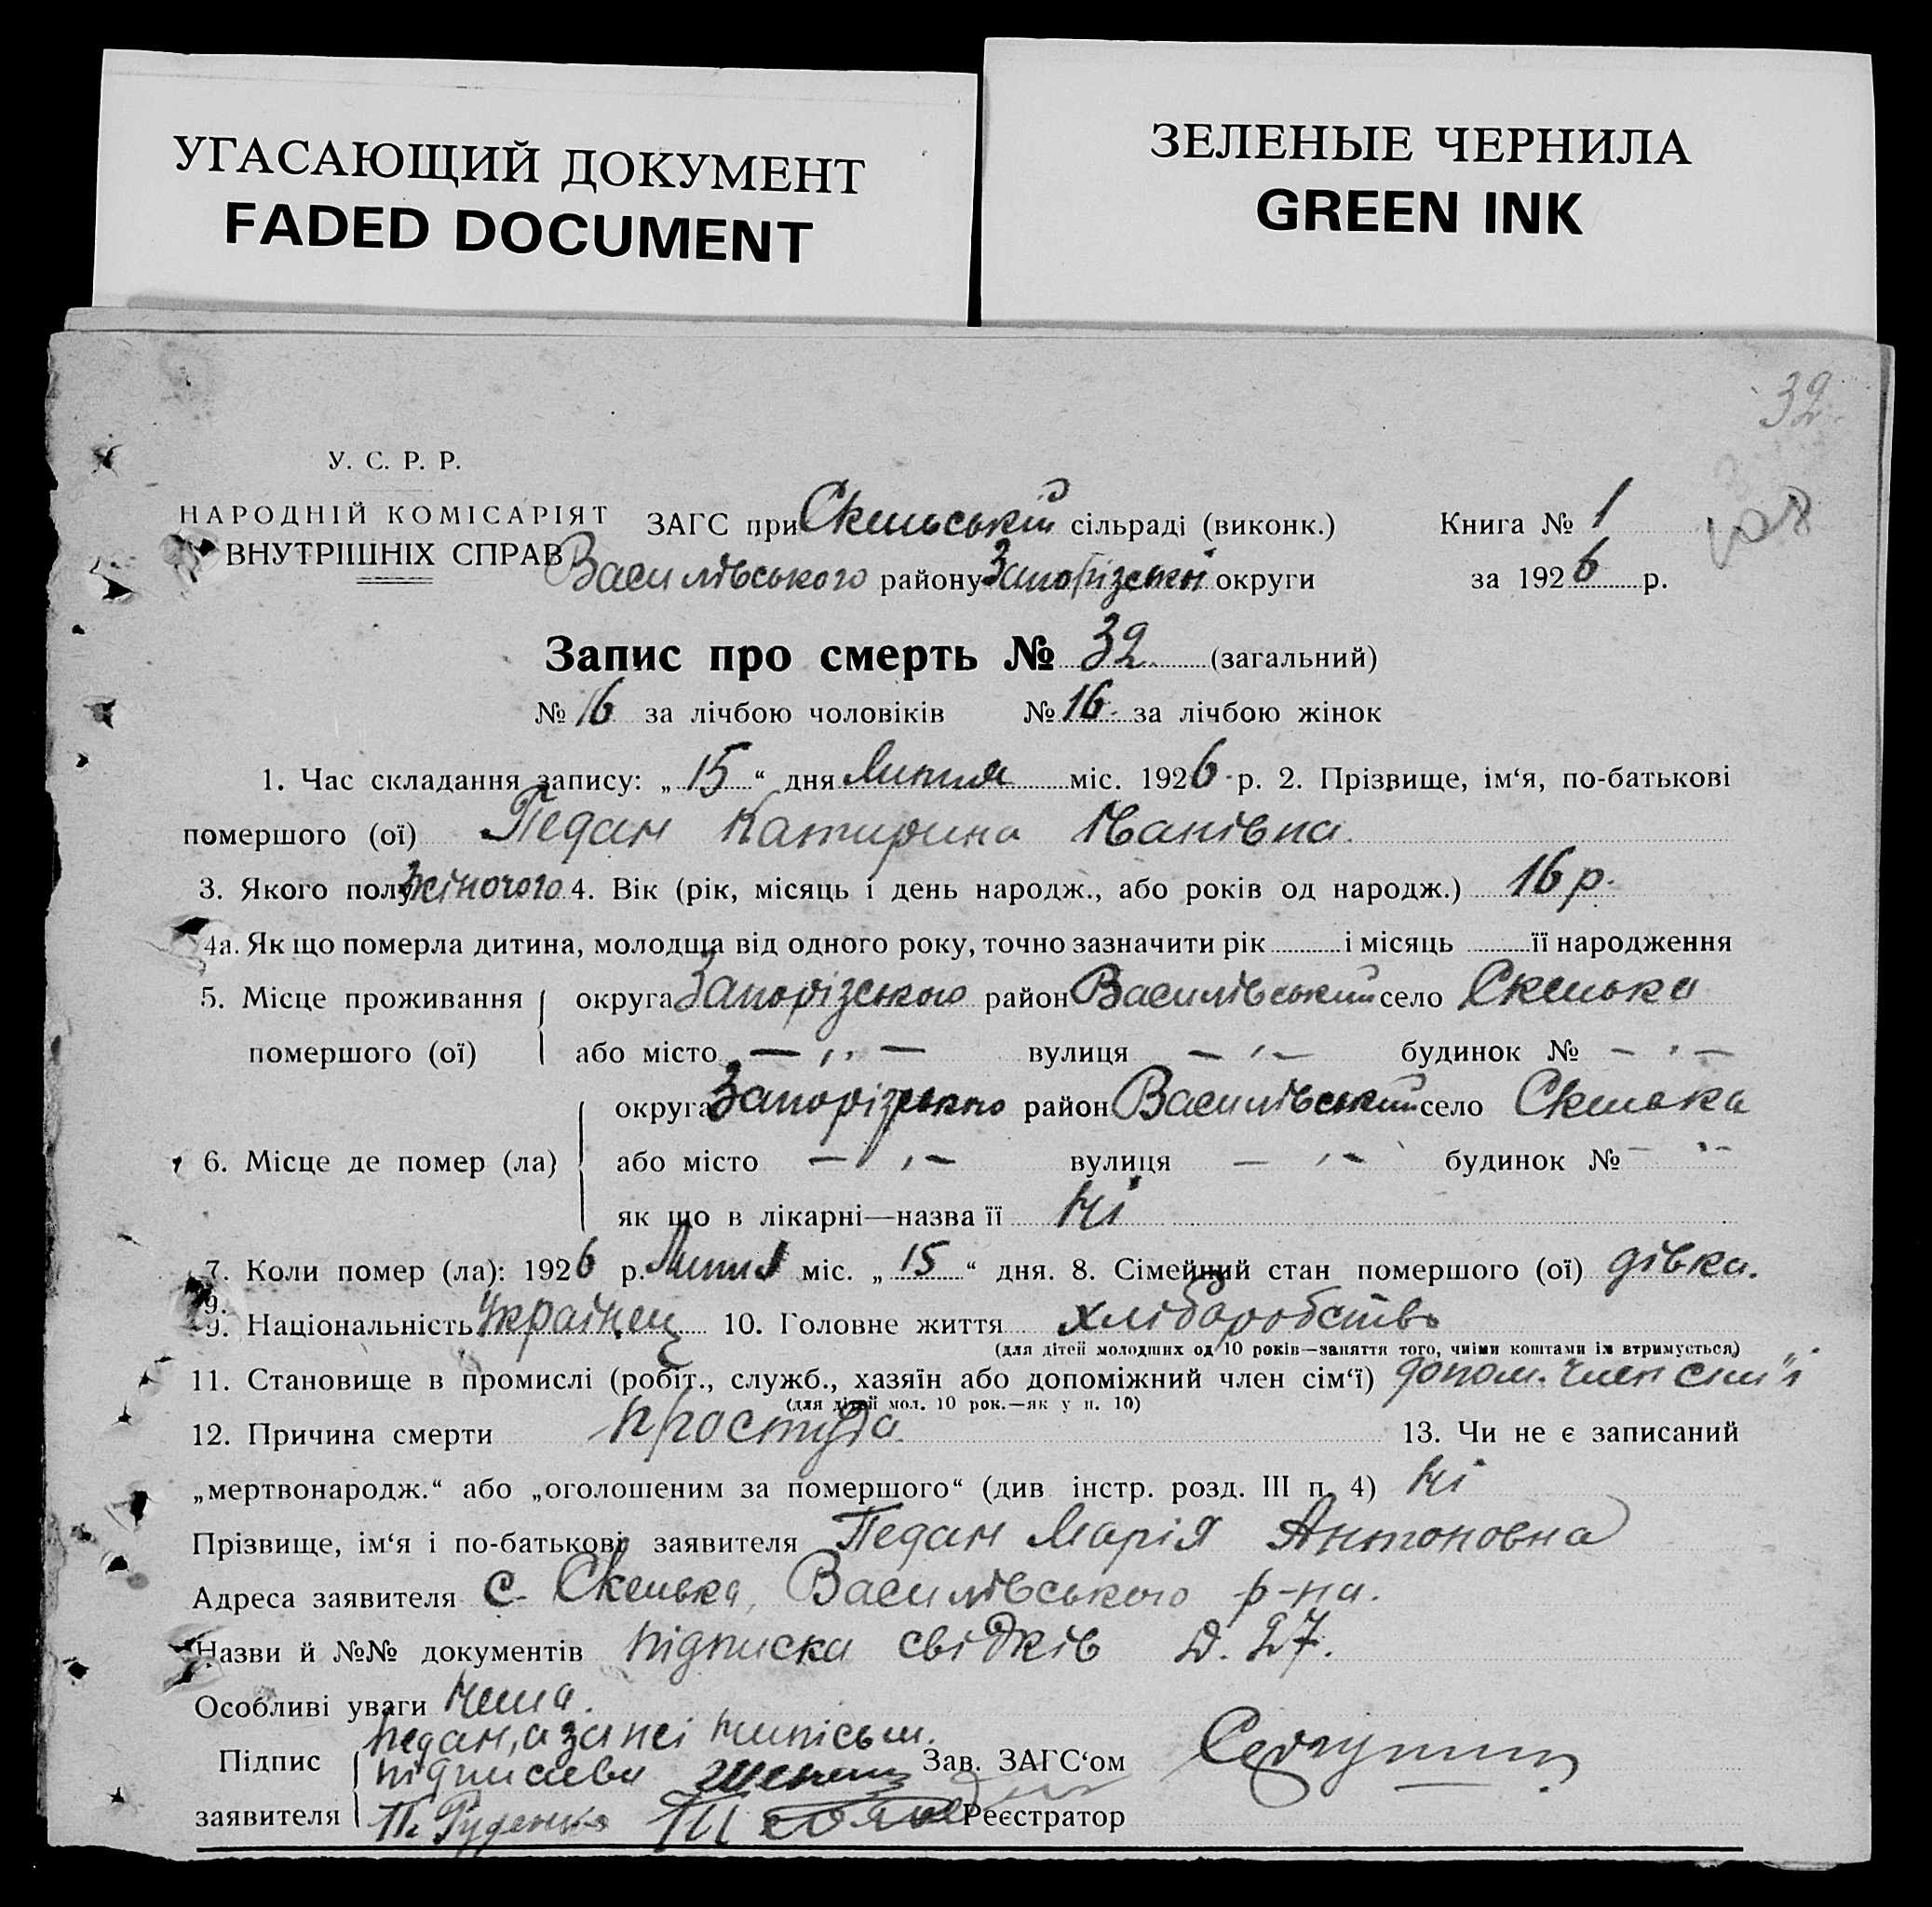 УГАСАЮЩИЙ ДОКУМЕНТ
FADED DOCUMENT
ЗЕЛЕНЫЕ ЧЕРНИЛА
GREEN INK
32
У. С. Р. Р.
НАРОДНІЙ КОМІСАРІЯТ
ВНУТРІШНІХ СПРАВ
ЗАГС при Скельській сільраді (виконк.) Книга № 1
Василівського району Запорізської округи за 1926 р.
Запис про смерть № 32 (загальний)
№ 16 за лічбою чоловіків № 16 за лічбою жінок
1. Час складання запису: „15“ дня Липня міс. 1926 р. 2. Прізвище, ім‘я, по-батькові
помершого (ої) Педан Катирина Іванівна
3. Якого полу жіночого 4. Вік (рік, місяць і день народж., або років од народж.) 16 р.
4а. Як що померла дитина, молодша від одного року, точно зазначити рік і місяць її народження
5. Місце проживання помершого (ої)
округа Запорізського район Василівський село Скелька
або місто — „ — вулиця — „ — будинок № — „ —
6. Місце де помер (ла)
округа Запорізського район Василівський село Скелька
або місто — „ — вулиця — „ — будинок № — „
як що в лікарні—назва її Ні
7. Коли помер (ла): 1926 р. Липня міс. „15“ дня. 8. Сімейний стан помершого (ої) дівка.
9. Національність Українец 10. Головне життя хліборобство
(для дітей молодших од 10 років—заняття того, чиїми коштами їх втримується)
11. Становище в промислі (робіт., служб., хазяїн або допоміжний член сім‘ї) допом. член сім'ї
(для дітей мол. 10 рок.—як у п. 10)
12. Причина смерти простуда 13. Чи не є записаний
„мертвонародж.“ або „оголошеним за помершого“ (див інстр. розд. III п. 4) Ні
Прізвище, ім‘я і по-батькові заявителя Педан Марія Антоновна
Адреса заявителя с. Скелька, Василівського р-на.
Назви й №№ документів підписка свідків д. 27.
Особливі уваги Нема.
Підпис заявителя
Педан, а за неі
підписавси Зав. ЗАГС‘ом
П. Руденко Реєстратор